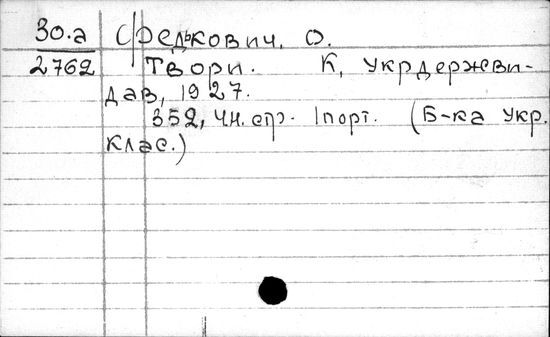 30.а Федькович, О.
2762 Твори. К, Укрдержви-
дав, 1927.
352, чн. стр. 1 порт. (Б-ка укр.
клас.)